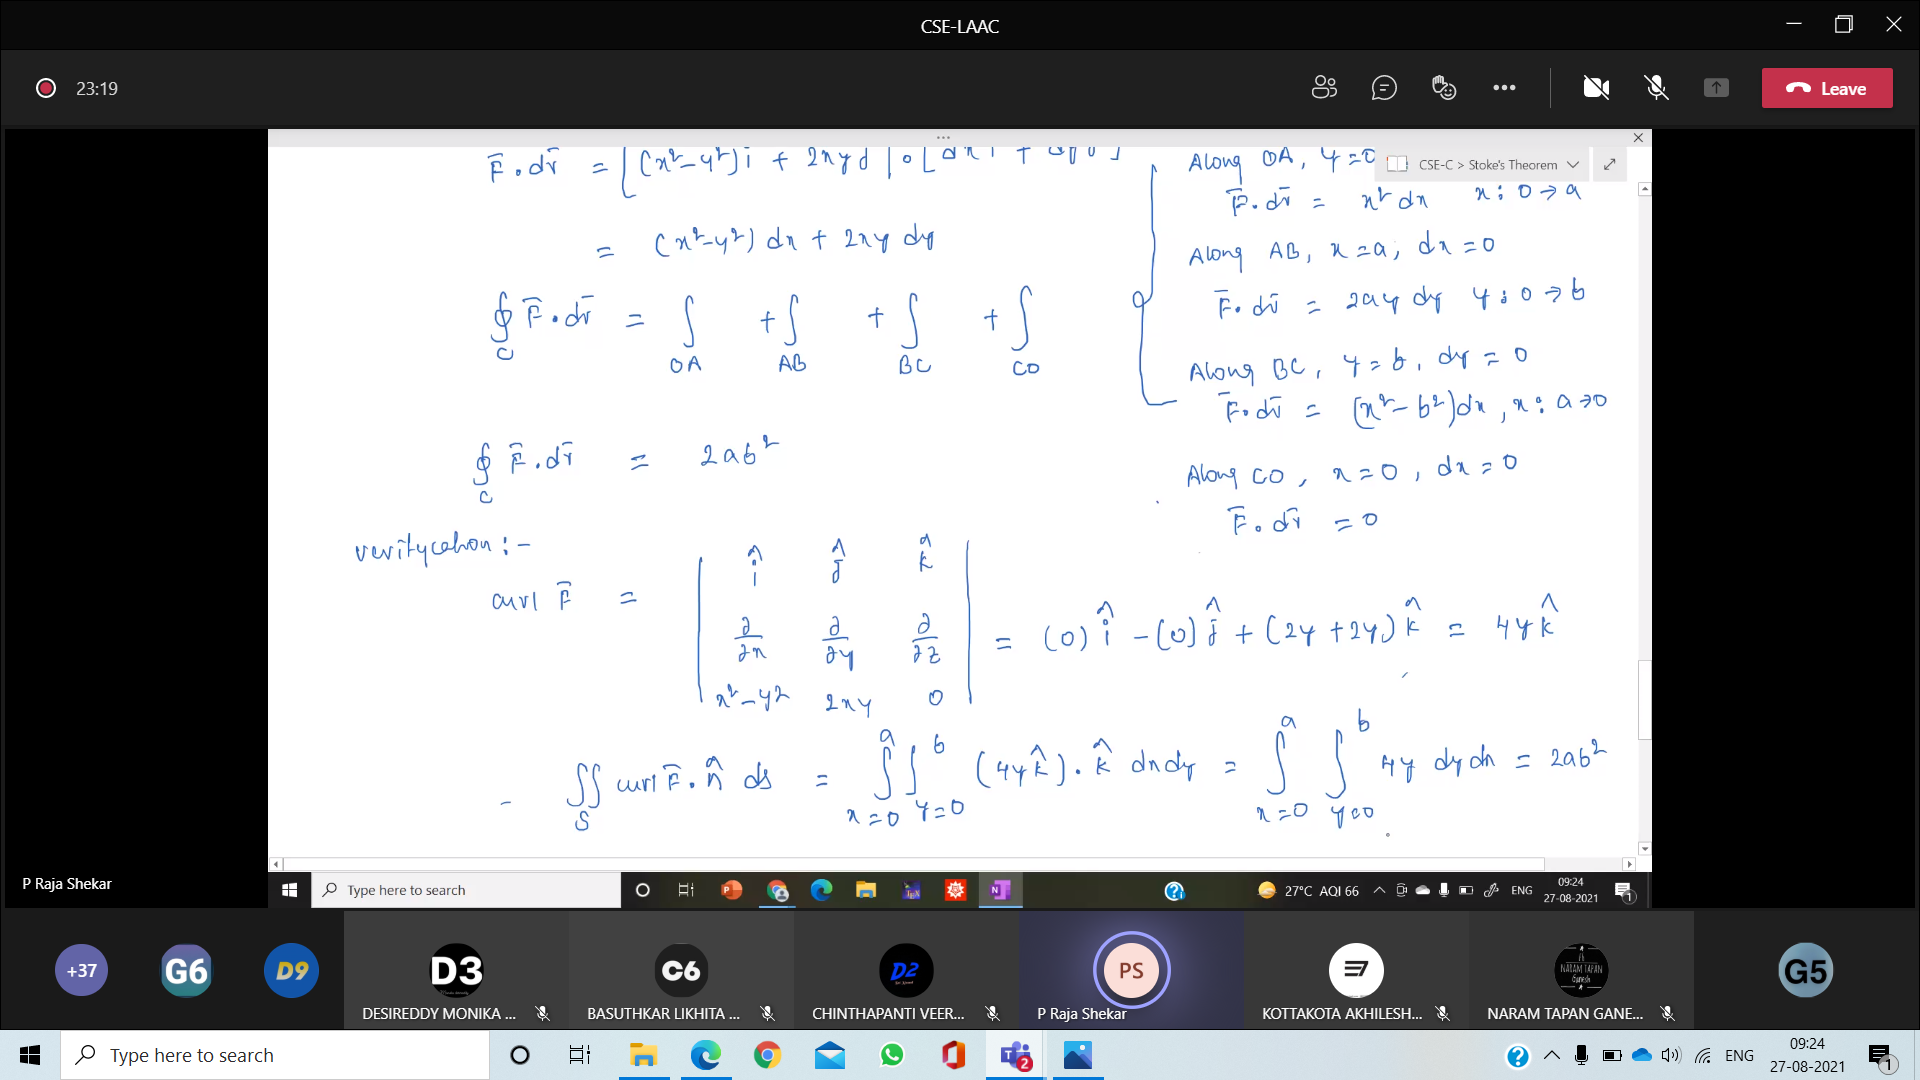 CSE-LAAC
23:19
Leave
CSE-C > Stoke's Theorem
F̄ . dr̄ = [(x²-y²) i + 2xy j] . [dx i + dy j]
= (x²-y²) dx + 2xy dy
∮ F̄ . dr̄ = ∫ + ∫ + ∫ + ∫
C OA AB BC CO
∮ F̄ . dr̄ = 2ab²
C
Along OA, y=0
F̄ . dr̄ = x² dx x : 0 → a
Along AB, x = a, dx = 0
F̄ . dr̄ = 2ay dy y : 0 → b
Along BC, y = b, dy = 0
F̄ . dr̄ = (x² - b²) dx, x : a → 0
Along CO, x = 0, dx = 0
F̄ . dr̄ = 0
verifycation :-
curl F̄ = | î ĵ k̂ |
| ∂/∂x ∂/∂y ∂/∂z | = (0) î - (0) ĵ + (2y + 2y) k̂ = 4y k̂
| x²-y² 2xy 0 |
∬ curl F̄ . n̂ ds = ∫ ∫ (4y k̂) . k̂ dx dy = ∫ ∫ 4y dy dx = 2ab²
S x=0 a y=0 b x=0 a y=0 b
P Raja Shekar
Type here to search
27°C AQI 66
ENG
09:24
27-08-2021
1
+37
G6
D9
D3
DESIREDDY MONIKA ...
C6
BASUTHKAR LIKHITA ...
D2
CHINTHAPANTI VEER...
PS
P Raja Shekar
KOTTAKOTA AKHILESH...
NARAM TAPAN
Ganesh
NARAM TAPAN GANE...
G5
Type here to search
2
ENG
09:24
27-08-2021
1